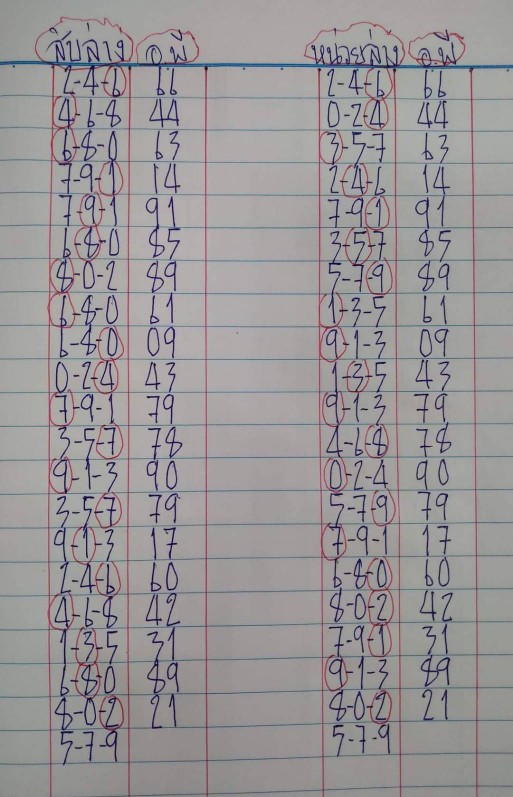 สิบล่าง อ.พี หน่วยล่าง อ.พี
2-4-6 66 2-4-6 66
4-6-8 44 0-2-4 44
6-8-0 63 3-5-7 63
7-9-1 14 2-4-6 14
7-9-1 91 7-9-1 91
6-8-0 85 3-5-7 85
8-0-2 89 5-7-9 89
6-8-0 61 1-3-5 61
6-8-0 09 9-1-3 09
0-2-4 43 1-3-5 43
7-9-1 79 9-1-3 79
3-5-7 78 4-6-8 78
9-1-3 90 0-2-4 90
3-5-7 79 5-7-9 79
9-1-3 17 7-9-1 17
2-4-6 60 6-8-0 60
4-6-8 42 8-0-2 42
1-3-5 31 7-9-1 31
6-8-0 89 9-1-3 89
8-0-2 21 8-0-2 21
5-7-9 5-7-9